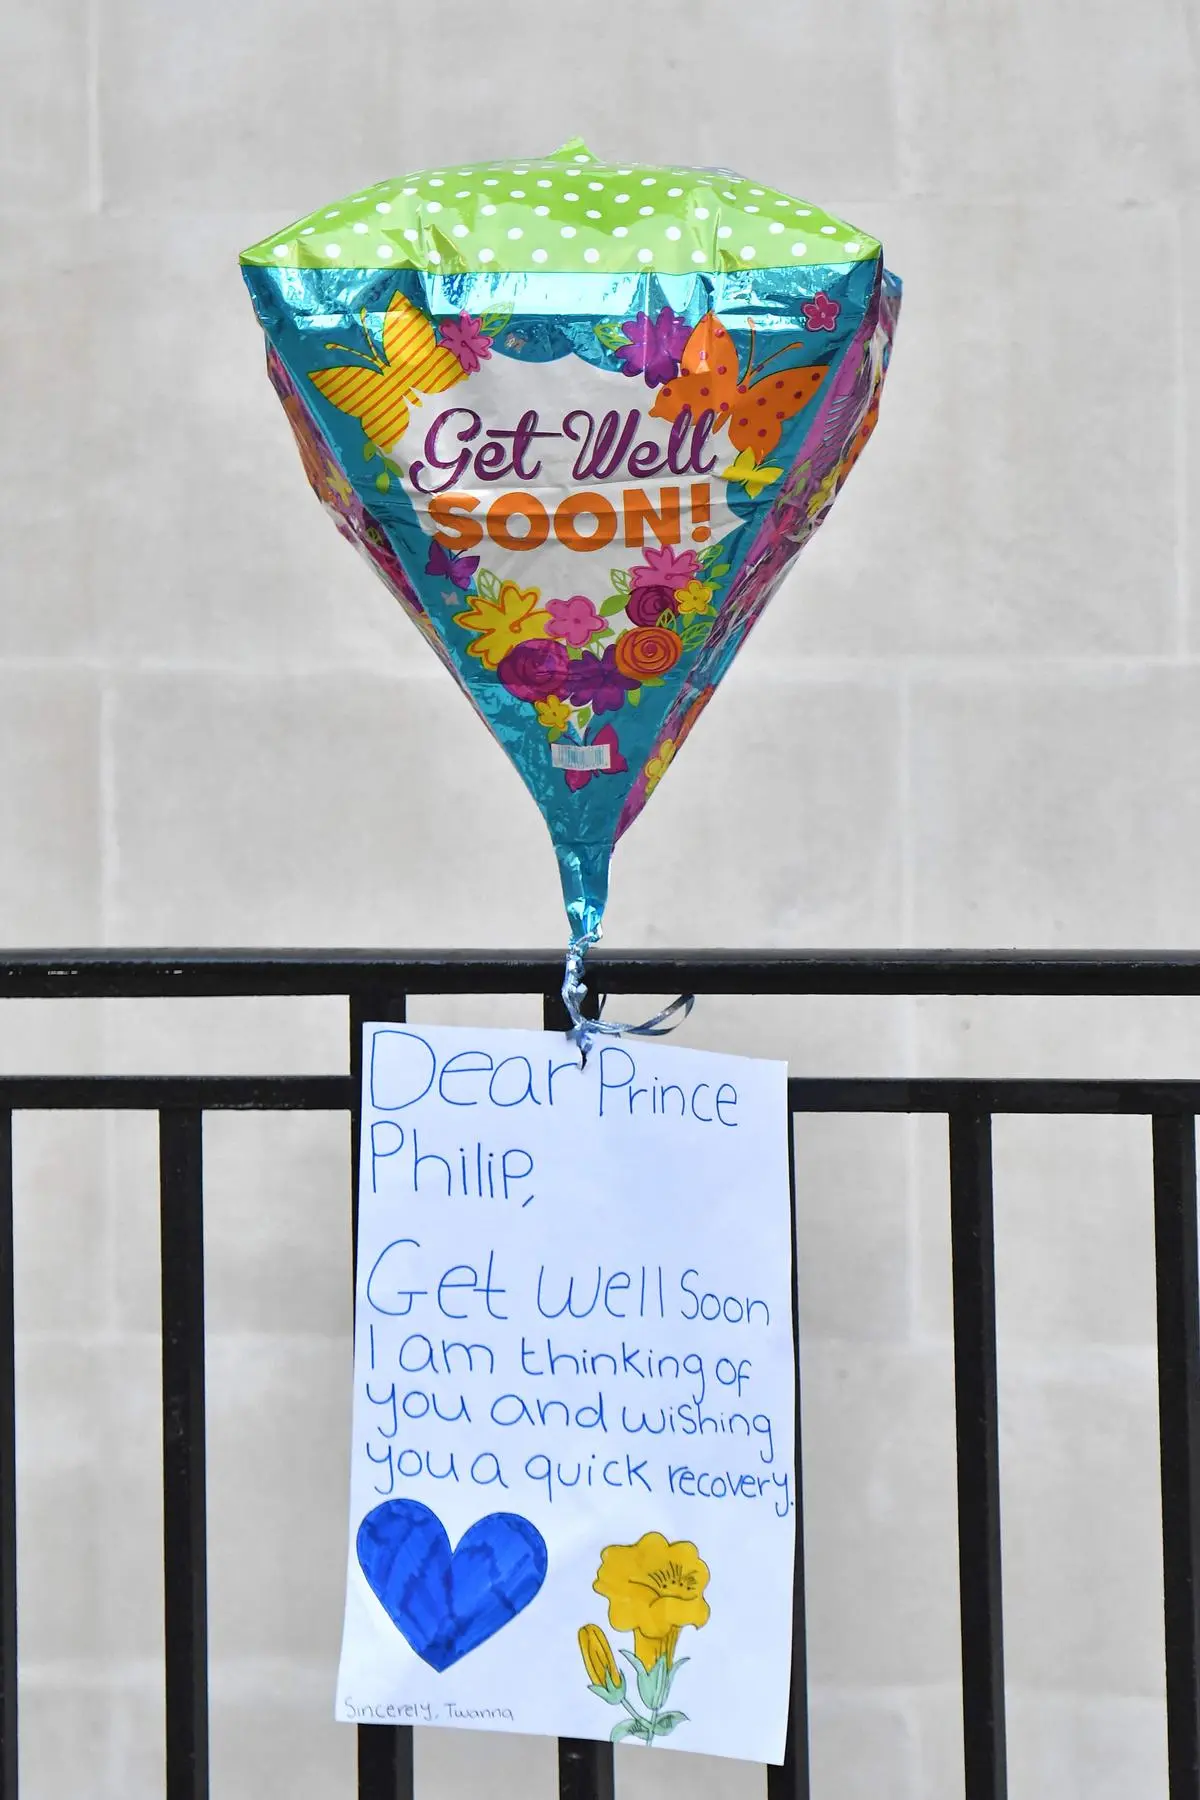 Get Well
SOON!
Dear Prince
Philip,
Get well soon
I am thinking of
you and wishing
you a quick recovery.
Sincerely, Twanna